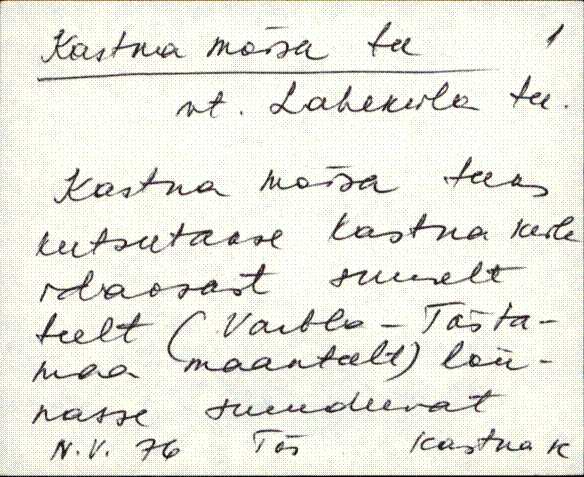 Kastna mõisa tee 1
vt. Laheküla tee.
Kastna mõisa teeks
kutsutakse Kastna küla
idaosast suurelt
teelt (Varbla - Tõsta-
maa maanteelt) lõu-
nasse suunduvat
N.V. 76 Tõs Kastna k